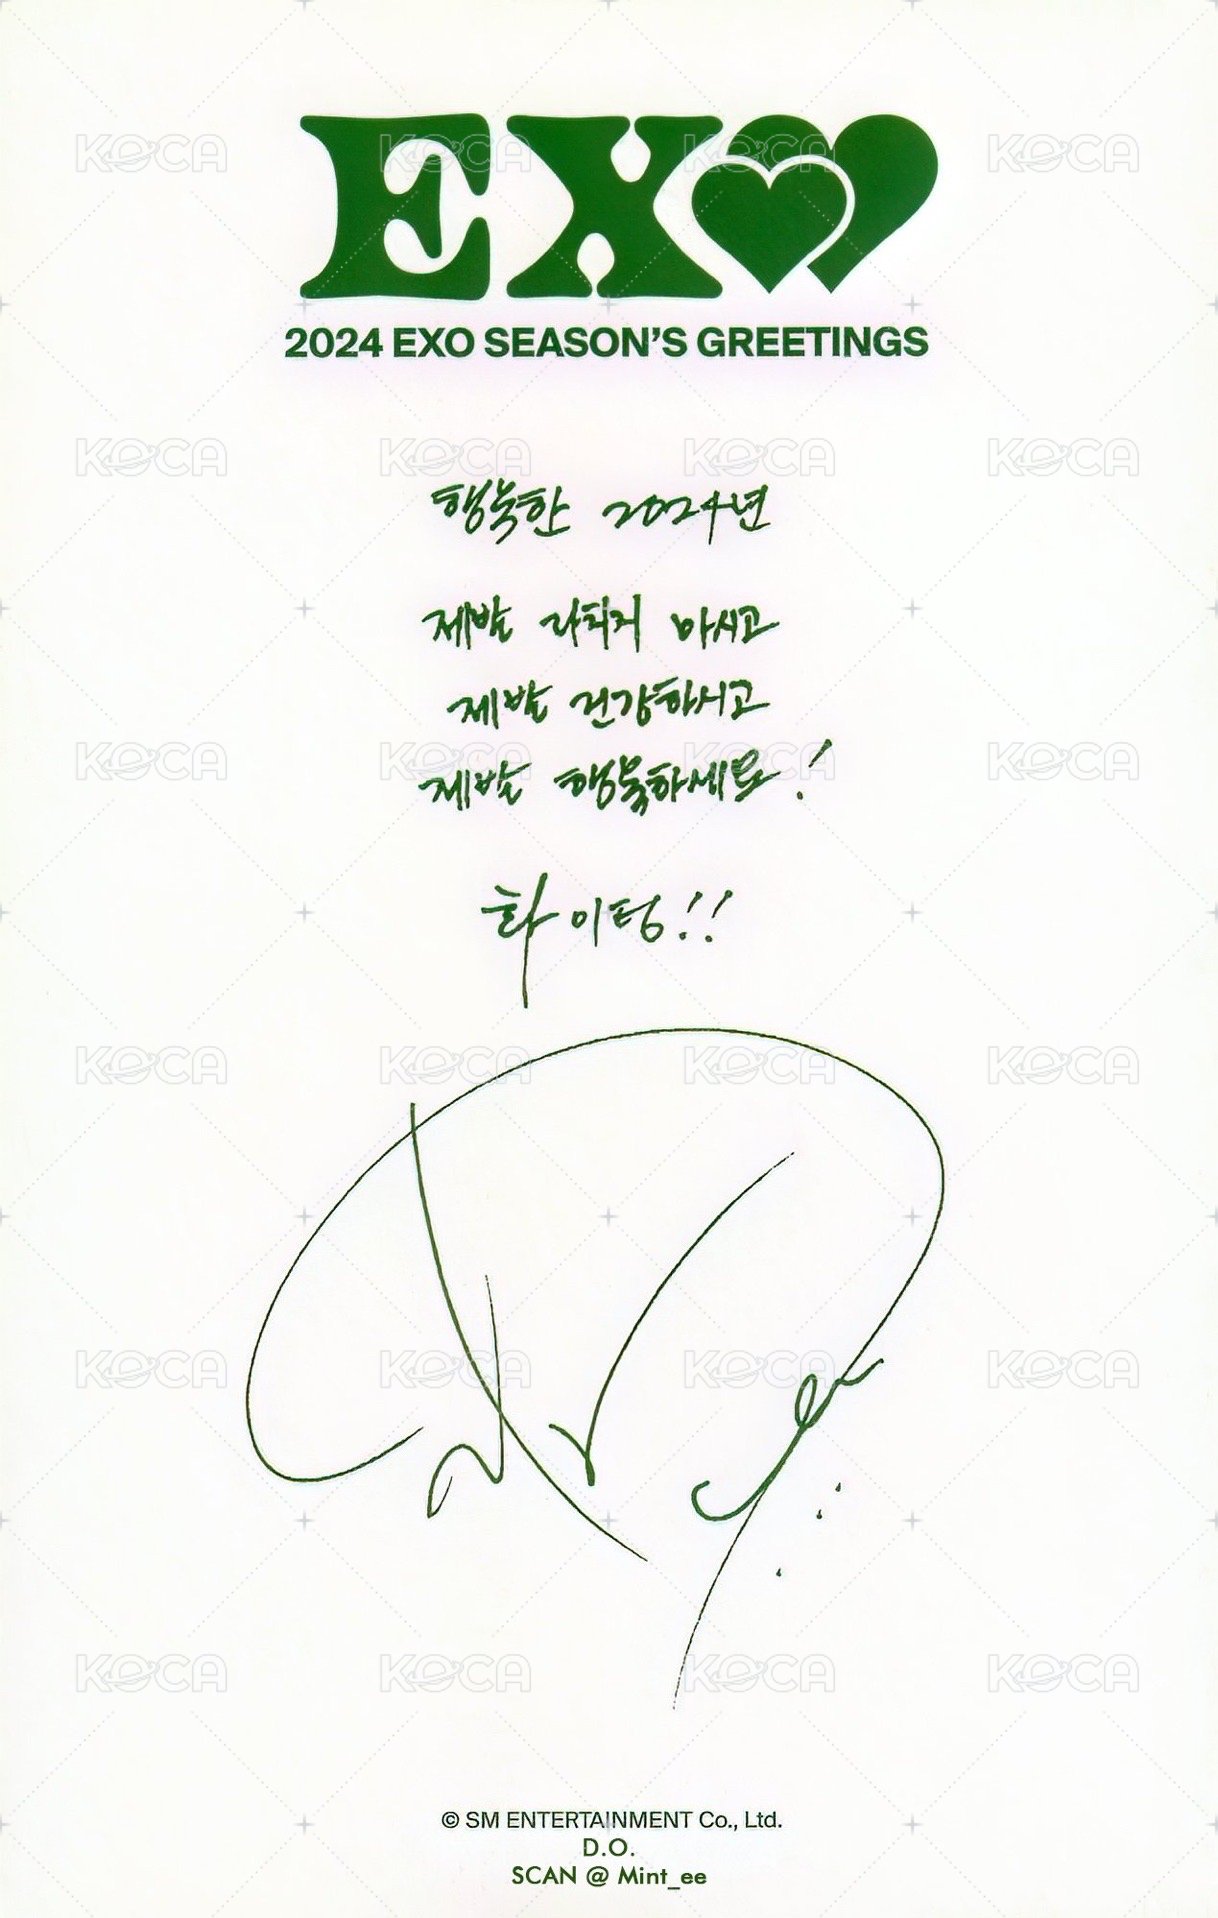 EXO
2024 EXO SEASON'S GREETINGS
행복한 2024년
제발 다치지 마시고
제발 건강하시고
제발 행복하세요!
화이팅!!
© SM ENTERTAINMENT Co., Ltd.
D.O.
SCAN @ Mint_ee
KOCA